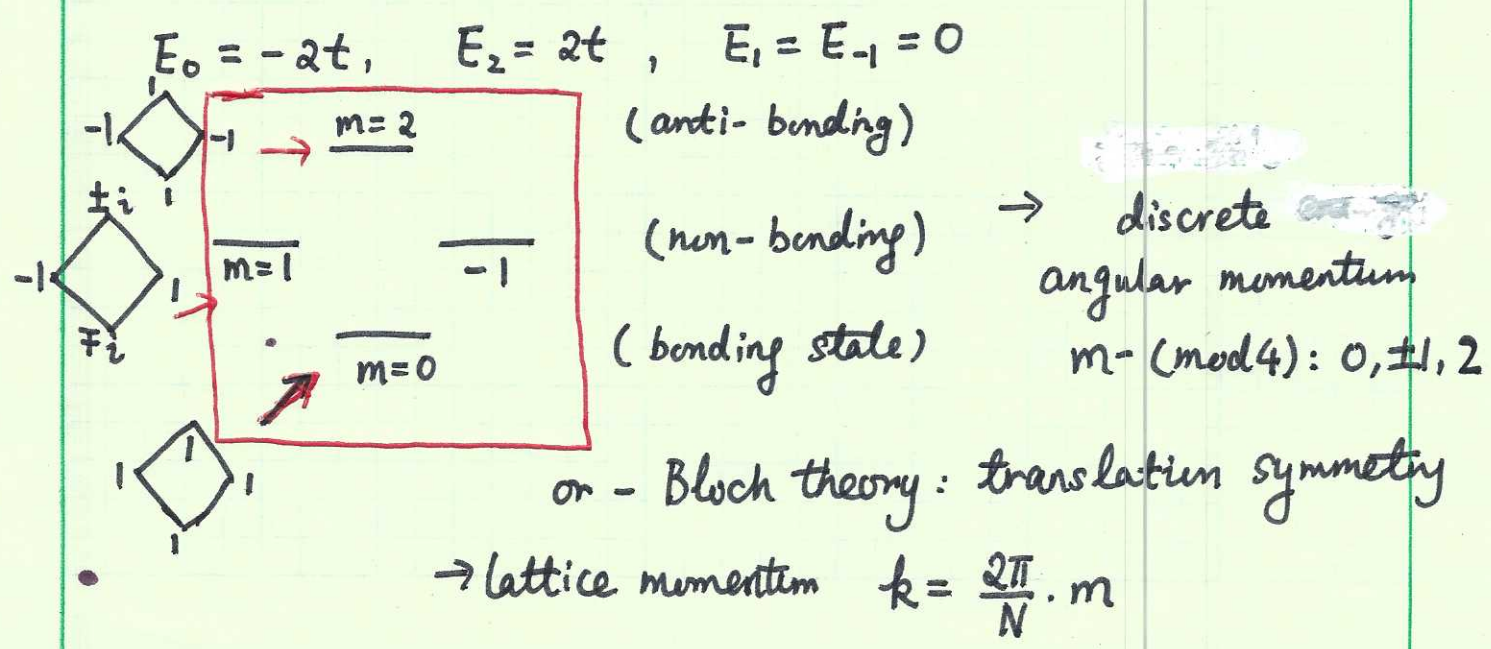 E₀ = -2t, E₂ = 2t, E₁ = E₋₁ = 0
1
-1 -1
1
m=2
(anti-bonding)
±i
-1 1
∓i
m=1
-1
(non-bonding)
→ discrete
angular momentum
m=0
(bonding state)
m- (mod4): 0, ±1, 2
1
1 1
1
or - Bloch theory: translation symmetry
→ lattice momentum k = 2π/N · m